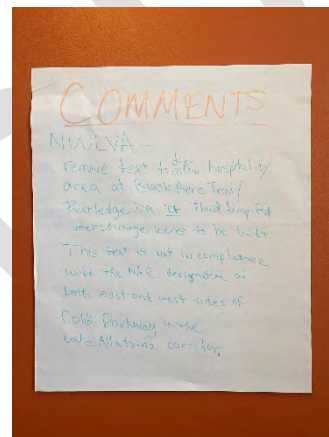 COMMENTS
NWLVA -
remove text to allow hospitality
area at Black Acre Trail/
Rutledge, DR IF Third Army Rd
interchange were to be built
This text is not in compliance
with the NAC designation on
both east and west sides of
Cobb Parkway in the
Lake Allatoona corridor.